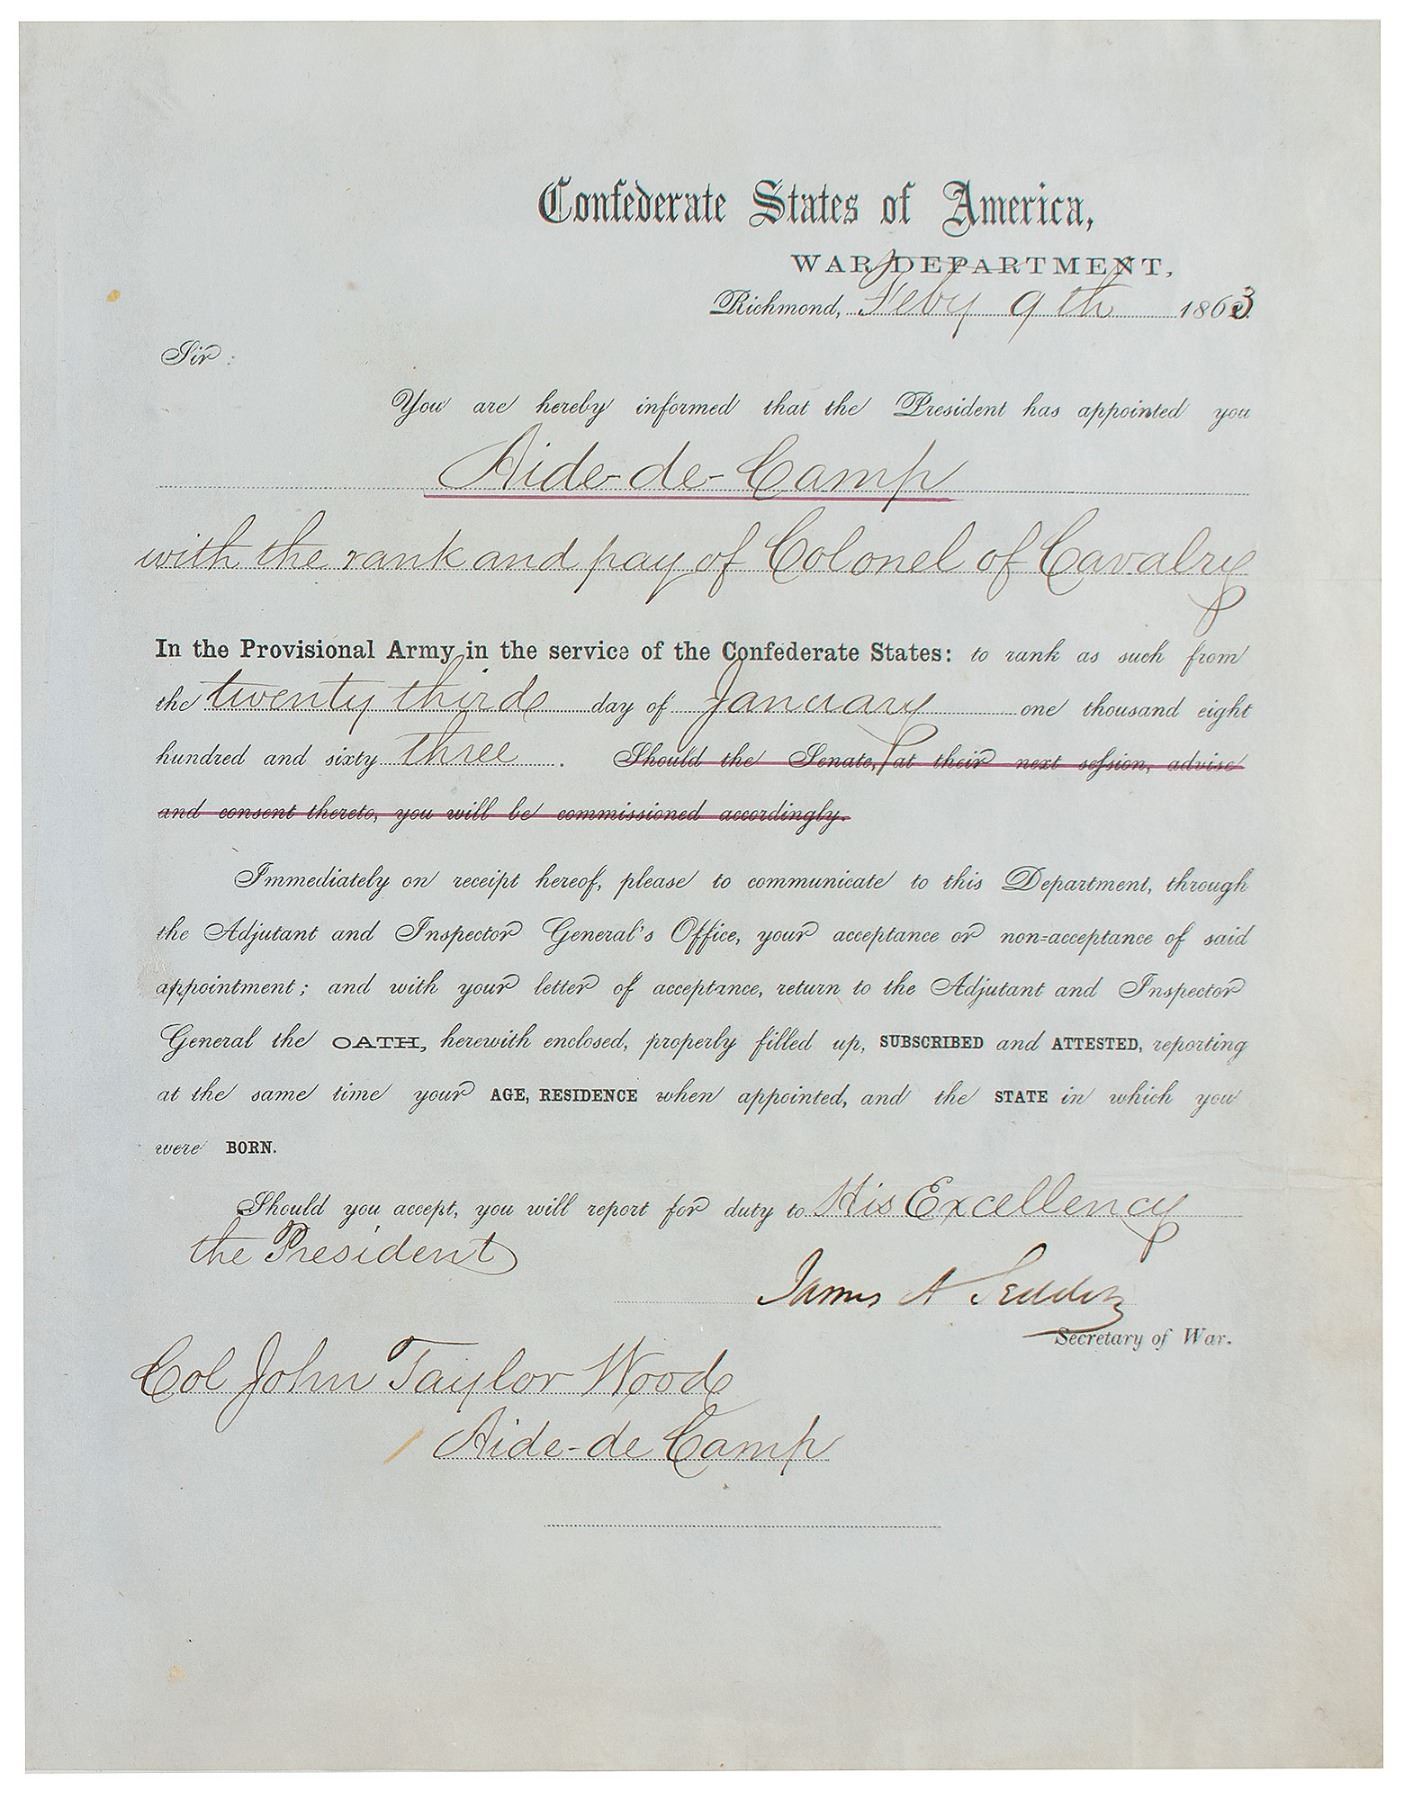 Confederate States of America,
WAR DEPARTMENT,
Richmond, Feby 9th 1863
Sir:
You are hereby informed that the President has appointed you
Aide-de-Camp
with the rank and pay of Colonel of Cavalry
In the Provisional Army in the service of the Confederate States: to rank as such from
the twenty third day of January one thousand eight
hundred and sixty three. Should the Senate, at their next session, advise
and consent thereto, you will be commissioned accordingly.
Immediately on receipt hereof, please to communicate to this Department, through
the Adjutant and Inspector General's Office, your acceptance or non=acceptance of said
appointment; and with your letter of acceptance, return to the Adjutant and Inspector
General the OATH, herewith enclosed, properly filled up, SUBSCRIBED and ATTESTED, reporting
at the same time your AGE, RESIDENCE when appointed, and the STATE in which you
were BORN.
Should you accept, you will report for duty to His Excellency
the President
James A Seddon
Secretary of War.
Col John Taylor Wood
Aide-de Camp